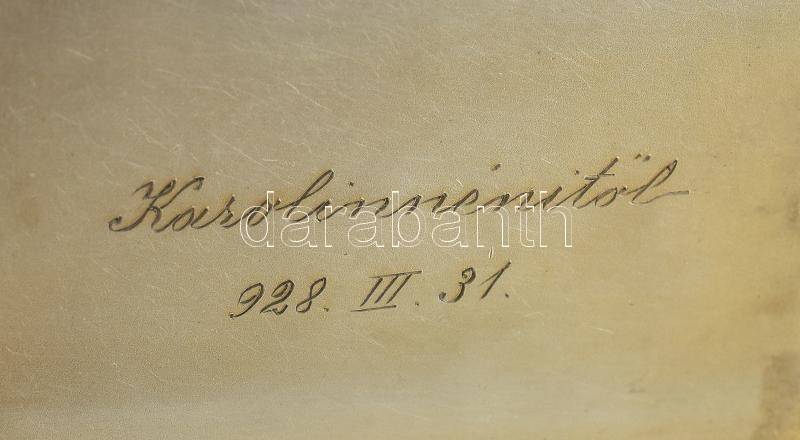 Karolinnénitől
darabanth
928. III. 31.